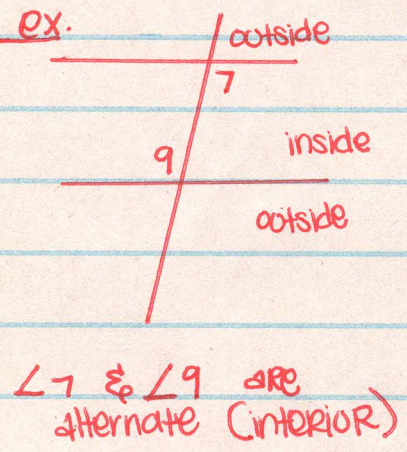 ex.
outside
7
inside
9
outside
∠7 & ∠9 are
alternate (interior)